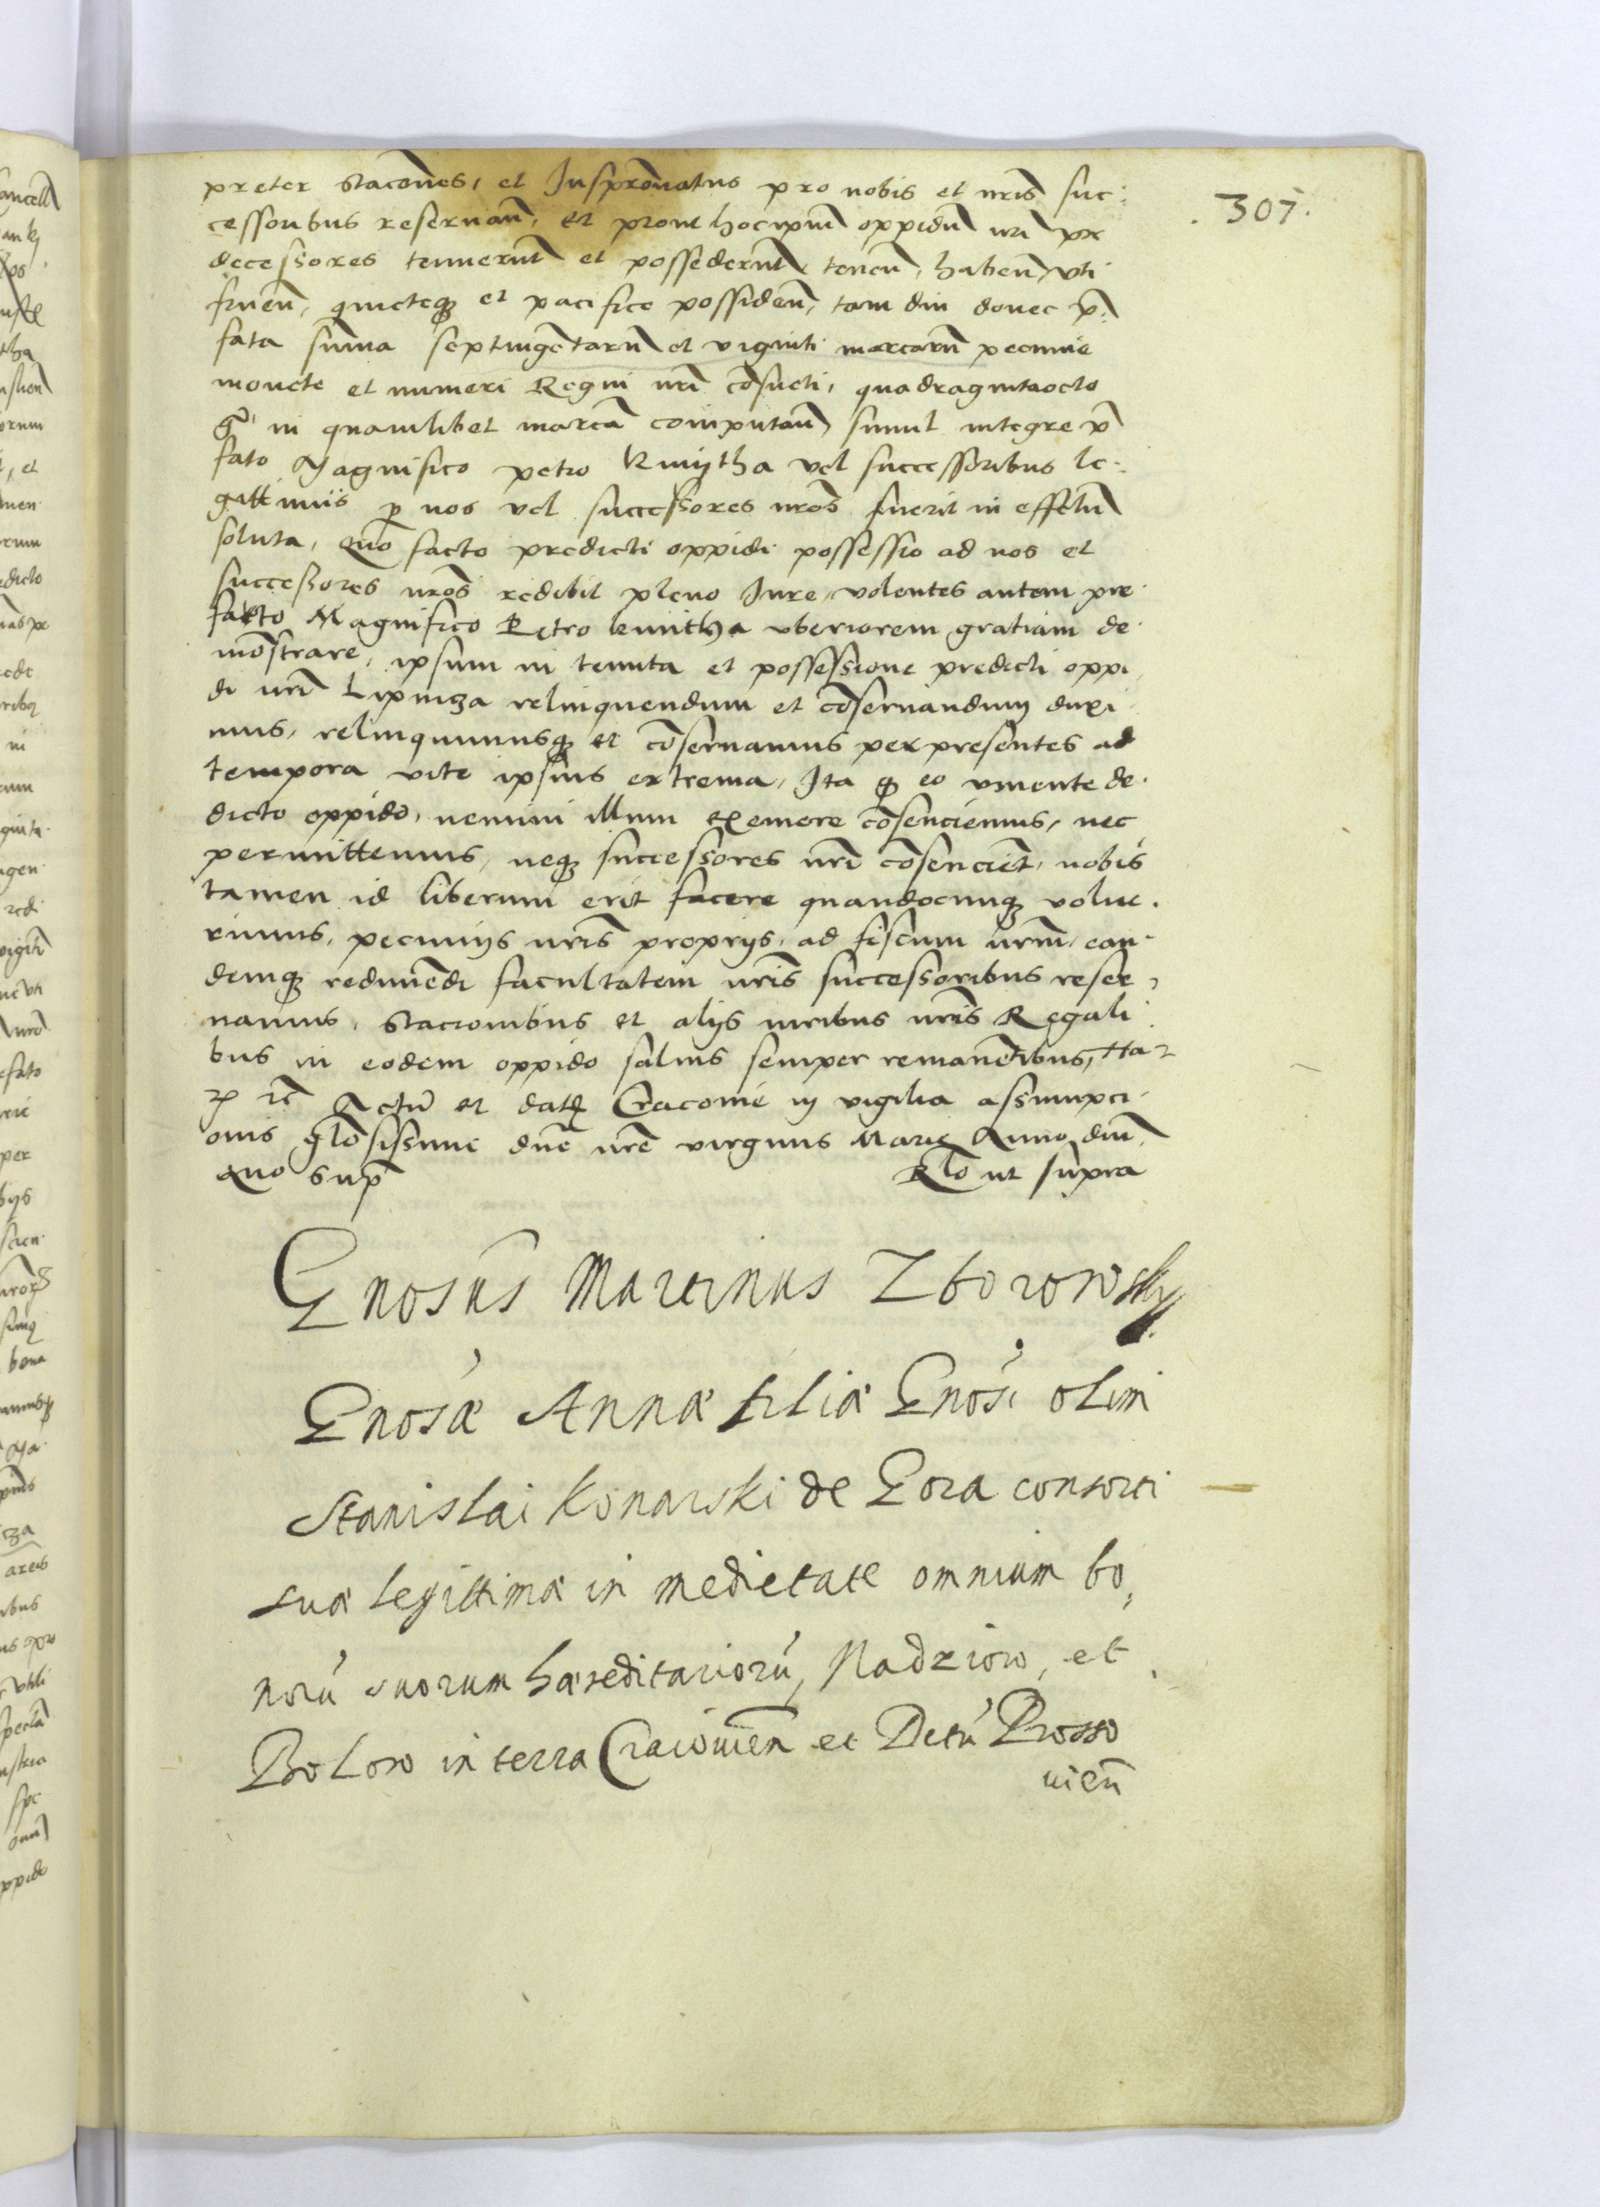 307.
preter stacōnes, et Juspronatus pro nobis et nr̄is suc:
cessoribus reseruan̄, et prout hoc ipm̄ oppidū nr̄i pr
decessores tenuerūt et possederūt, tenen̄, haben̄, vti
fruen̄, quieteq₃ et pacifice possiden̄, tam diu donec p̄:
fata sum̄a septingētarū et viginti marcarū pecunie
monete et numeri Regni nr̄i cōsueti, quadragintaocto
gr̄ in quamlibet marcā computan̄, simul integre p̄
fato Magnifico petro Kmytha vel successoribus le:
gittimis p nos vel successores nr̄os fuerit in effctū
soluta, Quo facto predicti oppidi possessio ad nos et
successores nr̄os redibit pleno Jure, volentes autem pre
fato Magnifico Petro kmitha vberiorem gratiam de
mōstrare, ipsum in tenuta et possessione predicti oppi
di nr̄i Lipnicza relinquendum et cōseruandum duxi
mus, relinquimusq₃ et cōseruamus per presentes ad
tempora vite ipsius extrema, Ita q₃ eo viuente de
dicto oppido, nemini illum exemere cōsenciemus, nec
permittemus, neq₃ successores nr̄i cōsencient, nobis
tamen id liberum erit facere quandocunq₃ volue.
rimus, pecunijs nr̄is proprijs, ad fiscum nr̄m, ean
demq₃ redimēdi facultatem nr̄is successoribus reser
uamus, stacionibus et alijs iuribus nr̄is Regali
bus in eodem oppido saluis semper remanētibus, Ha
Actū et dat₃ Cracouie in vigilia assumpci
onis gl̄osissime dn̄e nr̄e virginis Marie Anno dn̄i
quo sup̄ Rl̄o ut supra
Gnosus̄ Martinus Zborowsky
Gnosæ Annæ filiæ Gnosi olim
Stanislai Konarski de Gora consorti
suæ legittimæ in medietate omnium bo,
norū suorum hæreditariorū, Nadziow, et
Bolow in terra Cracouien̄ et Dctū Prosso
uien̄